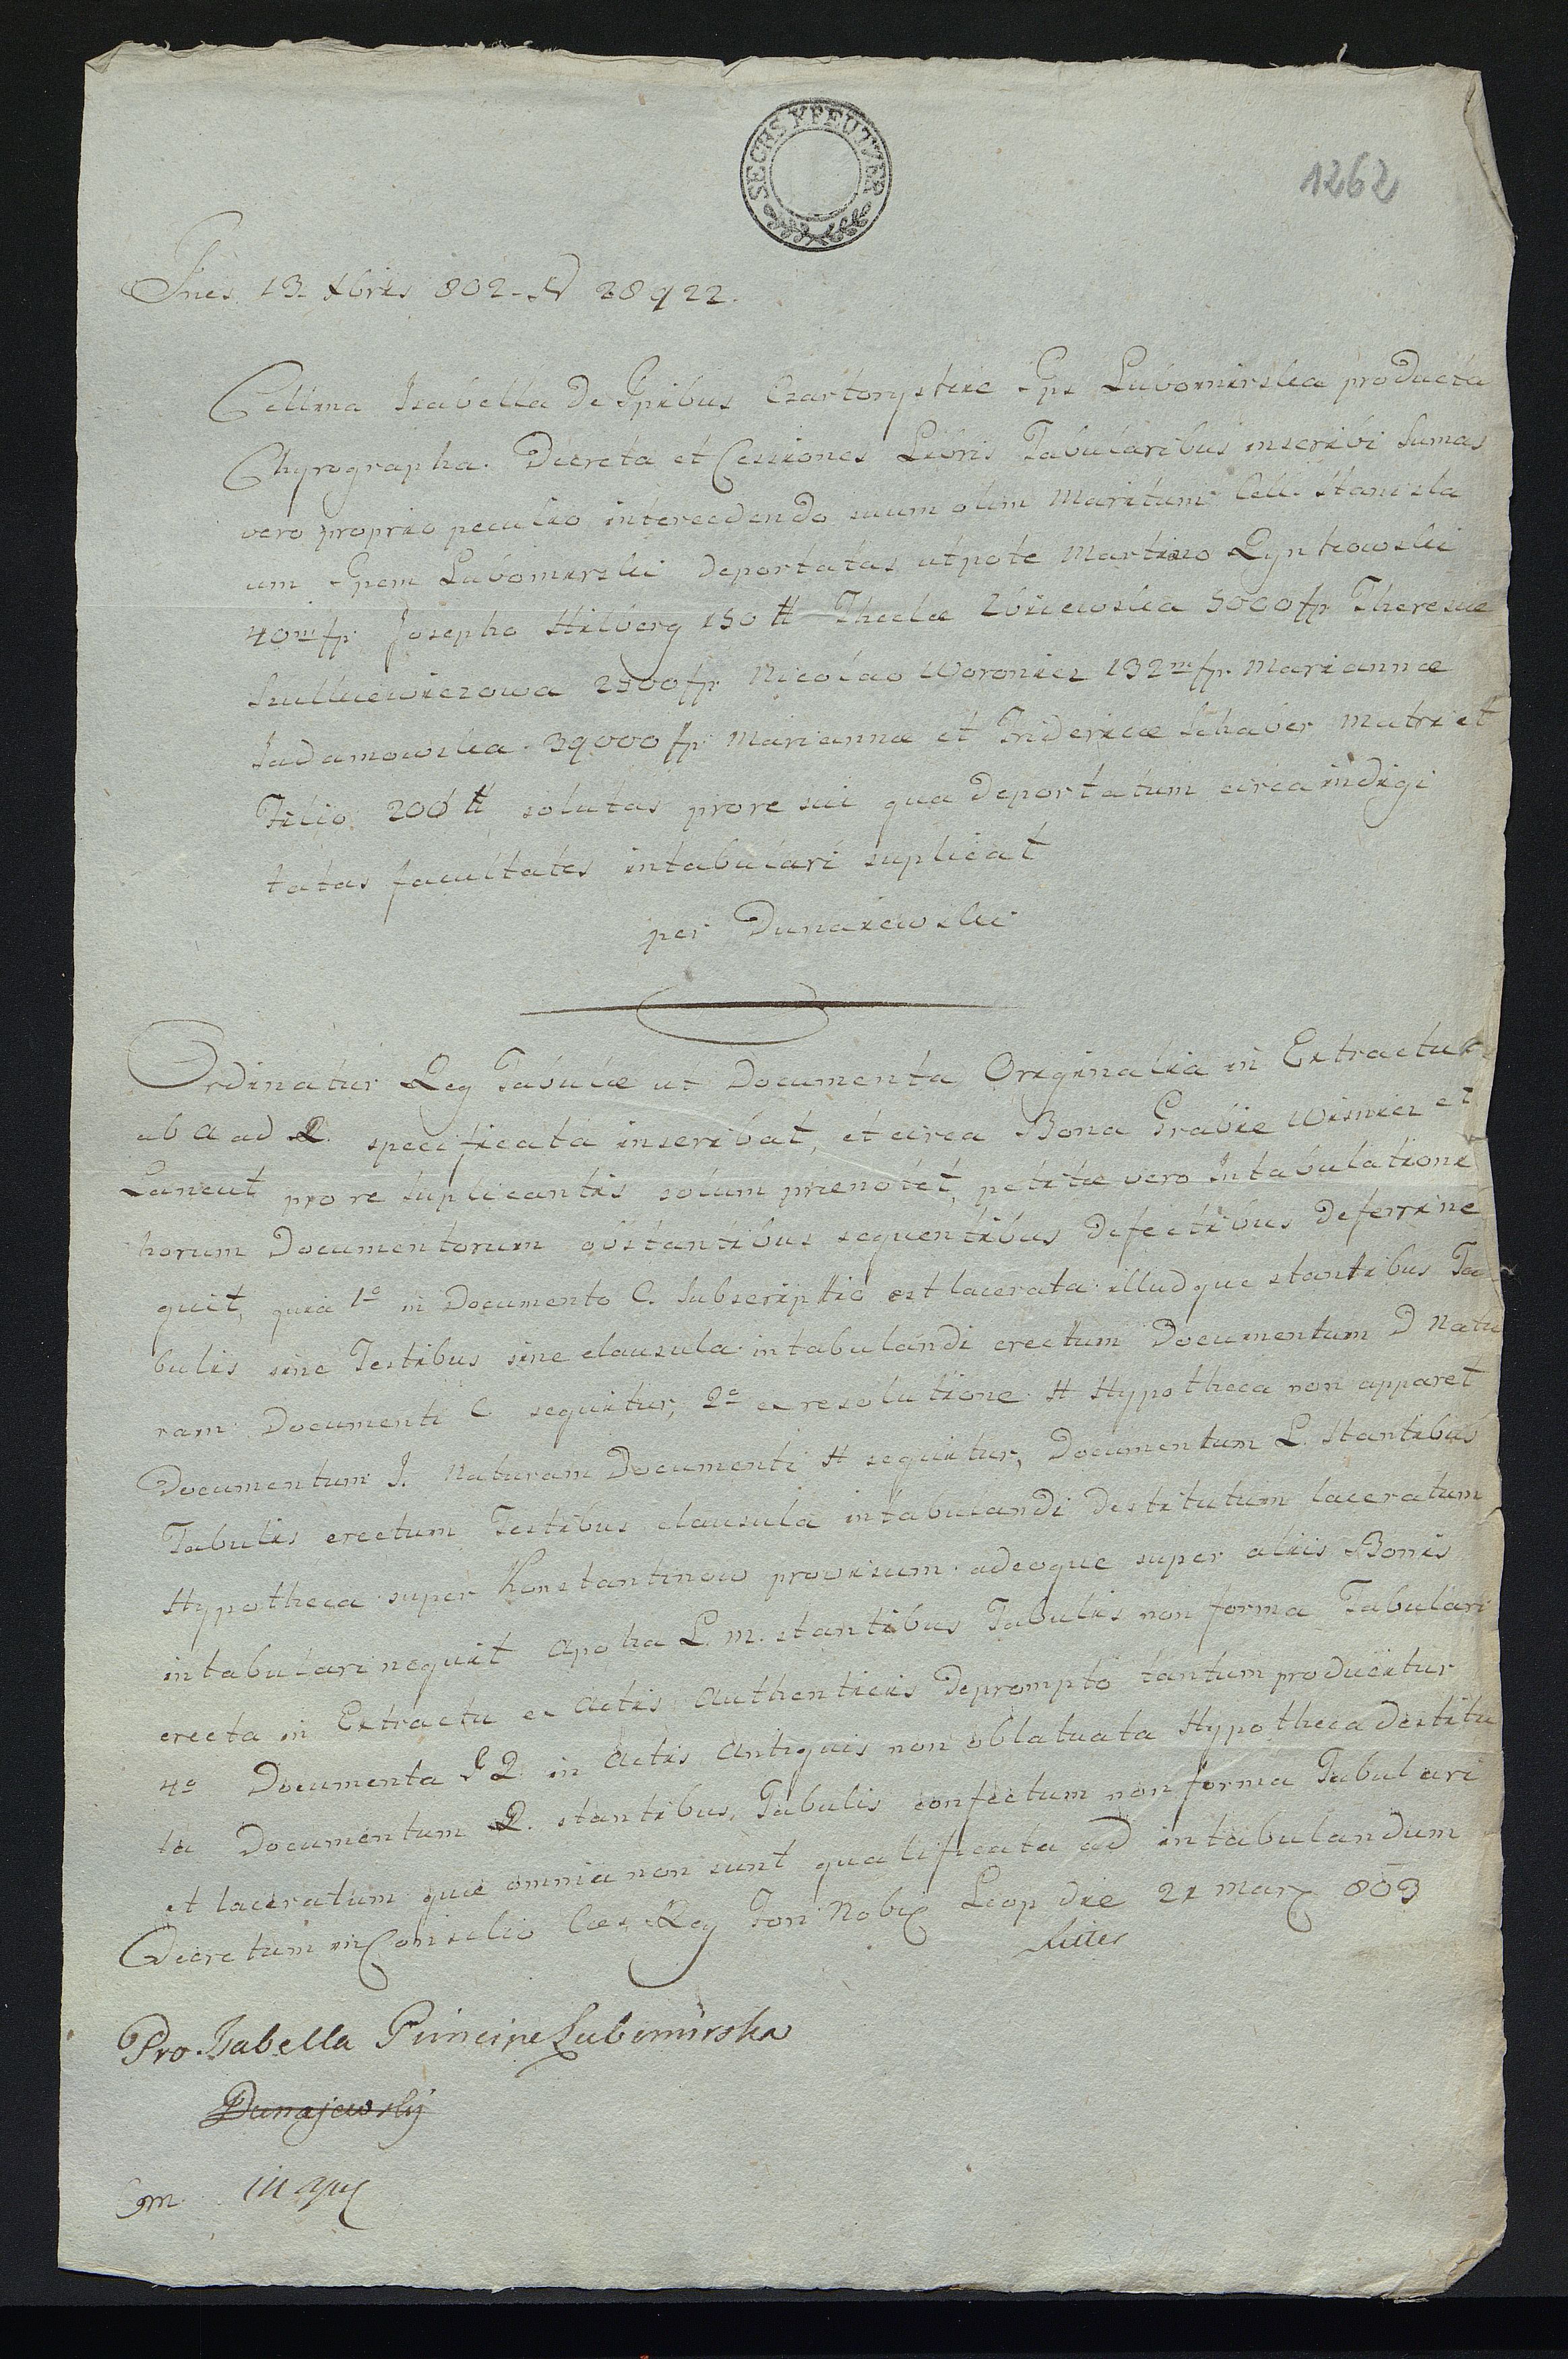 SECHS KREUTZER
1262
Pnes 13 Xbris 802 - N 28922.
Cellma Isabella de Ppibus Czartoryskie Pps Lubomirska producta
Chyrographa. Decreta et Cessiones Libris Tabularibus inseribi Sumas
vero proprio peculio intercedendo suum olim Maritum Cell. Stanisla
um Ppem Lubomirski deportatas utpote Martino Rynkowski
40m fp. Josepho Hilberg 150 # Theclæ Zbiiewska 5000 fp Theresiæ
2500 fp. Nicolao Woronicz 132m fp. Mariannæ
Sadamowska 39000 fp Mariannæ et Fridericæ Schaver Matri et
Filio 200 # solutas pro re sui qua deportatum circa indigi
tatas facultates intabulari suplicat
per Dunaiewski
Ordinatur Reg Tabulæ ut Documenta Originalia in Extractu
ab A ad Q. specificata inscribat, et circa Bona Prævie Wisnicz et
Lancut pro re suplicantis solum prænotet, petitæ vero Intabulationi
horum Documentorum obstantibus sequentibus defectibus deferri ne
quit, quia 1o in Documento C. Subscriptio est lacerata illudque stantibus Ta
bulis sine Testibus sine clausula intabulandi erectum Documentum D Natu
ram Documenti C sequitur, 2o e resolutione H Hypotheca non apparet
Documentum J. Naturam Documenti H sequitur, Documentum L. Stantibus
Tabulis erectum Testibus clausula intabulandi destitutum laceratum
Hypotheca super Konstantinow provisum adeoque super aliis Bonis
intabulari nequit Apocha L. m. stantibus Tabulis non forma Tabulari
erecta in Extractu ex Actis Authenticis deprompto tantum producitur
4o Documenta P Q in Actis Antiquis non oblatuata Hypotheca destitu
ta Documentum Q. stantibus Tabulis confectum non forma Tabulari
et laceratum quæ omnia non sunt qualificata ad intabulandum
Decretum in Consilio Cæs. Reg Fori Nobil Leop die 21 Mar 803
Pro Isabella Principe Lubomirska
Dunajewskÿ